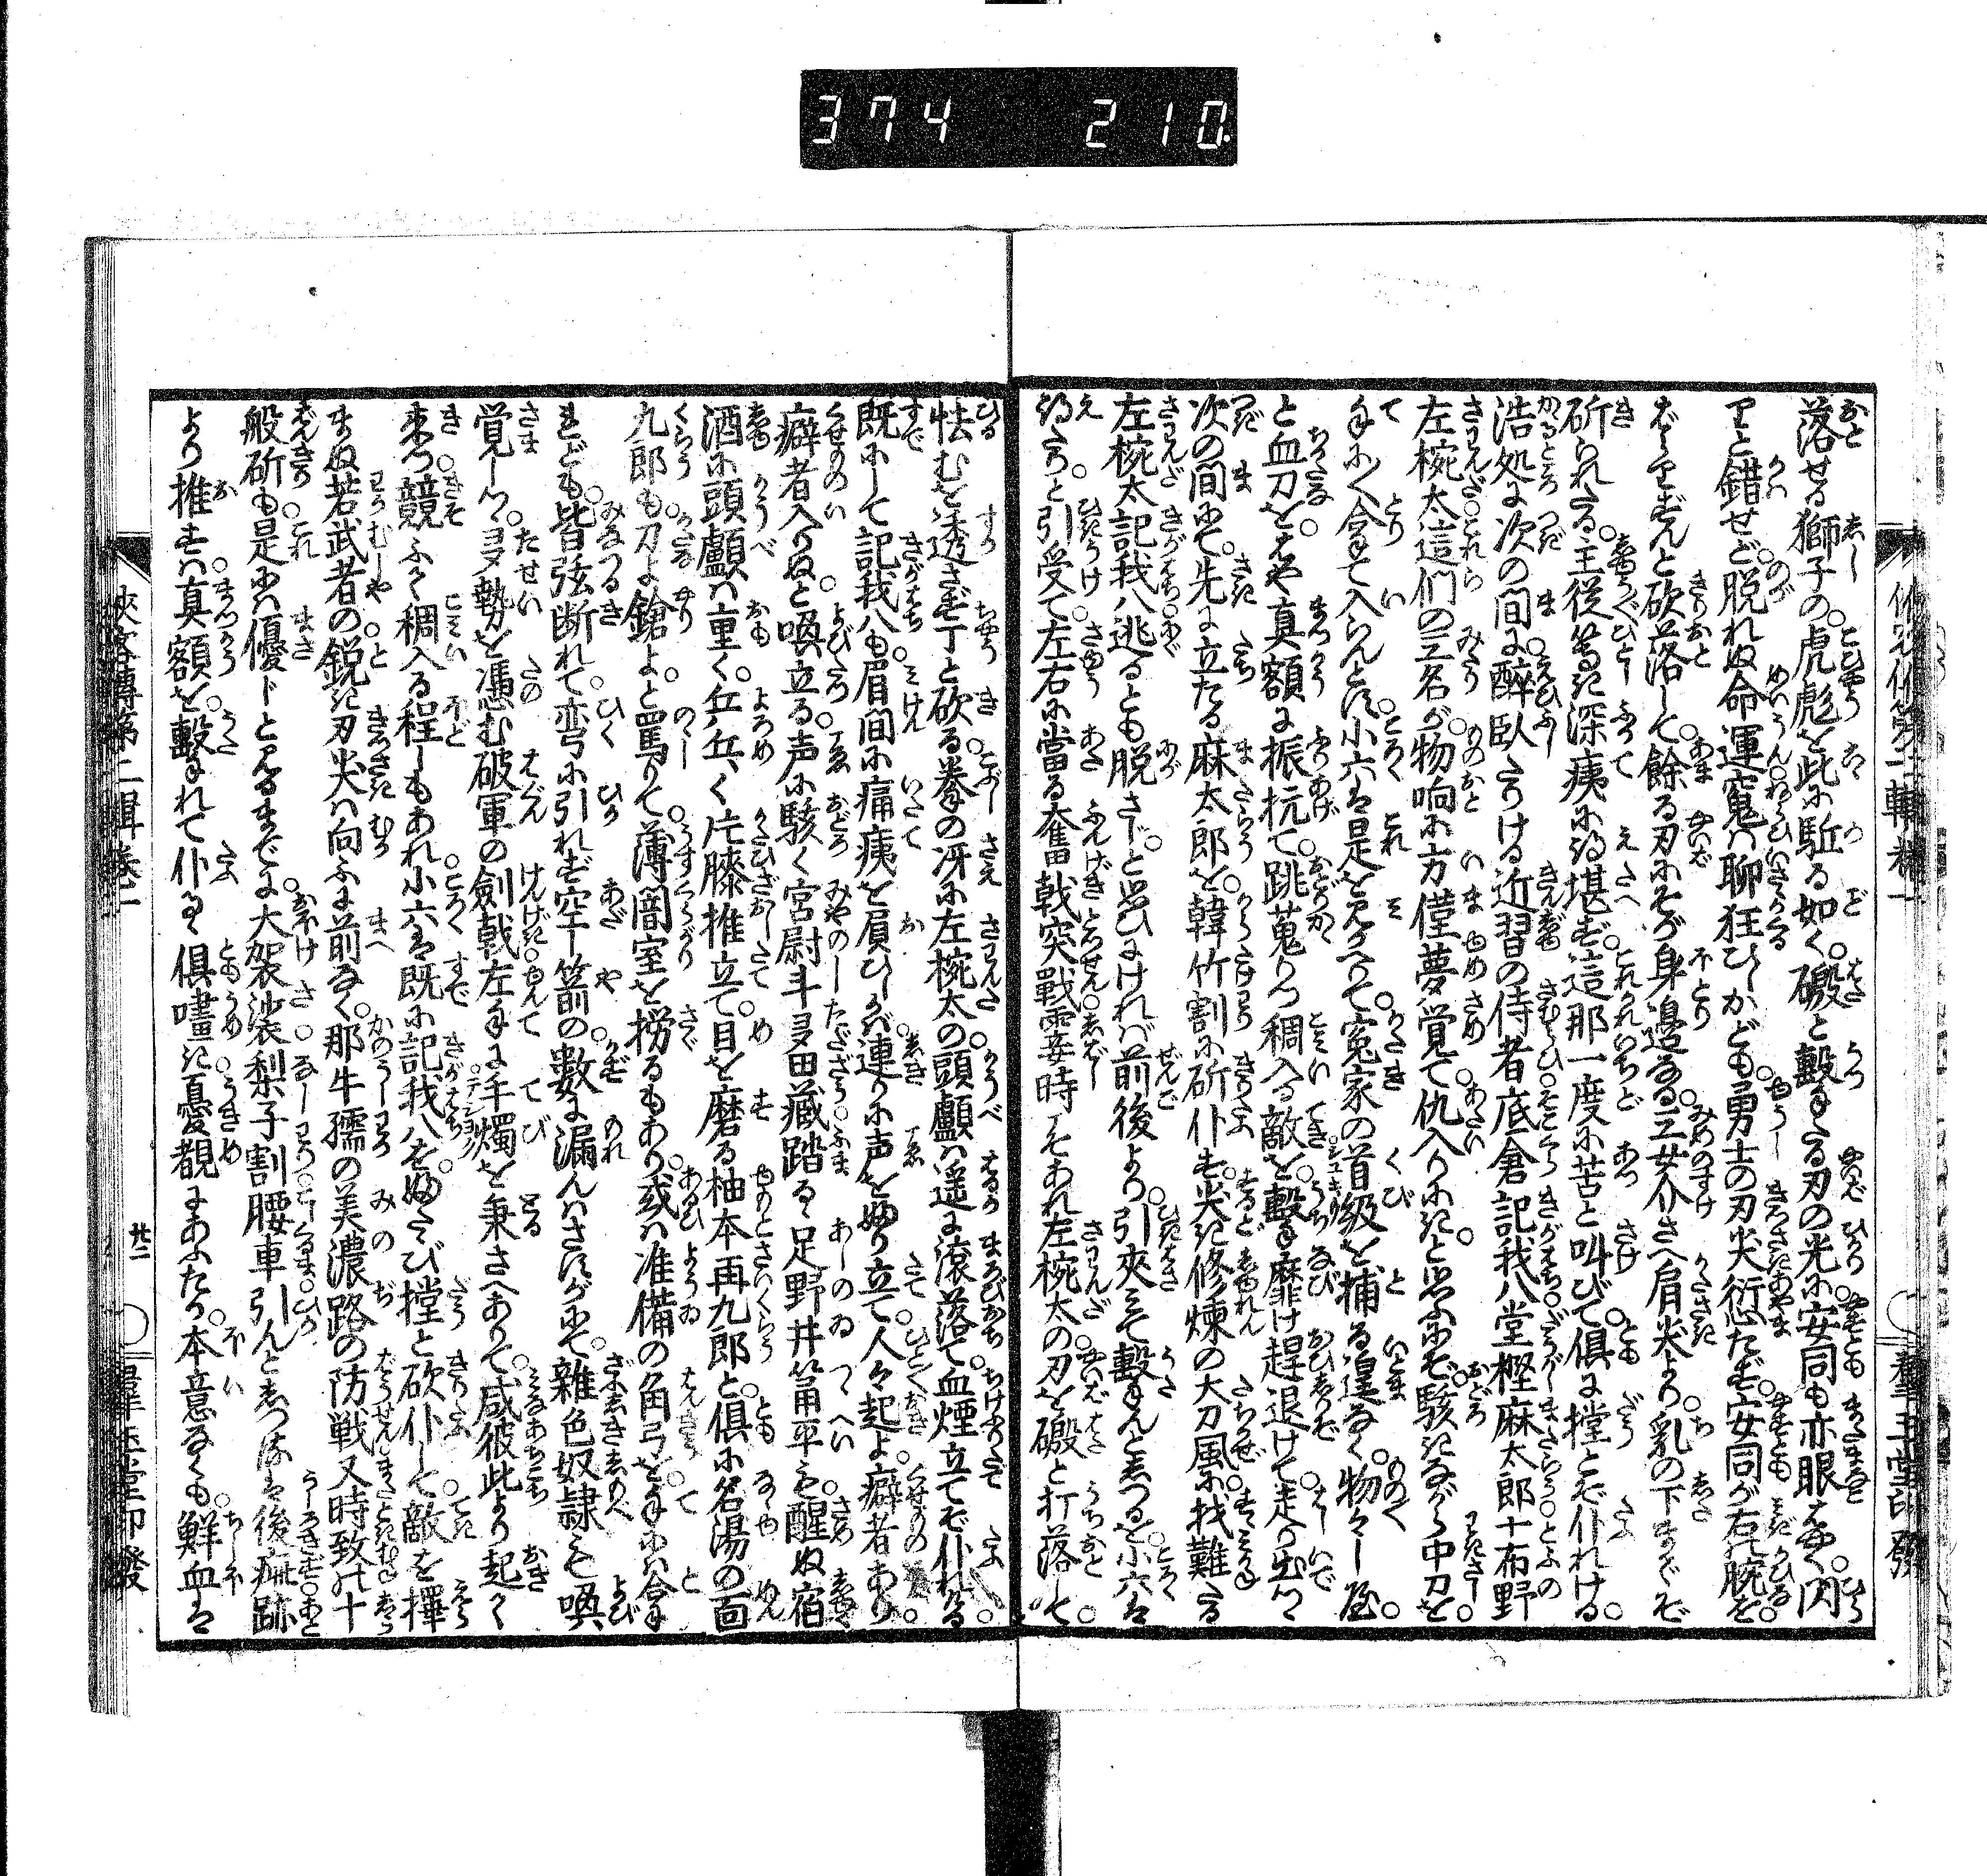 374 210
落せる獅子の虎彪を此に駈る如く。磤と轂るゝ刃の光に安同も亦眼はやく閃
りと錯せど。脱れぬ命運寃ハ聊狂ひしかども。勇士の刃尖衍たず。安同が右の腕を。
ばらりずんと砍落して。餘る刃にそが身邊なる。三女介さへ肩尖より。乳の下まてぞ
斫られたる。主従等しき深痍に得堪ず。這那一度に苦と叫びて。俱に摚とぞ仆れける。
浩処に次の間に。醉臥したりける近習の侍者。底倉記我八。堂樫麻太郎。十布野
左椀太。這们の三名が。物响に方僅夢覚て。仇入りにきと思ふにぞ。駭きながら中刀を。
手に／＼合て入らんとす。小六は是を見かへりて。寃家の首級を捕る遑なく。物々し屋。
と血刀を。はや真額に振抗て。跳蒐りつ稠入る敵を。轂靡け趕退けて。走り出つゝ
次の間にて。先に立たる麻太郎を。韓竹割に斫仆す。尖き修煉の大刀風に。找難たる
左椀太記我八。逃るとも脱さじ。と思ひにければ前後より。引夾みて轂んとしつるを。小六は
得たりと引受て。左右に當る奮戟突戰。霎時こそあれ左椀太の。刃を磤と打落して。
怯むを透さず丁と砍る。拳の冴に左椀太の。頭顱ハ遥に滚落て。血煙立てぞ仆れける。
既にして記我八も。眉間に痛痍を負ひしかバ。連りに声をふり立て。人々起よ。癖者あり。
癖者入りぬと喚立る。声に駭く宮尉斗。多田藏踏る。足野井筩平も。醒ぬ宿
酒に頭顱ハ重く。丘丘く片膝推立て。目を磨る柚本再九郎と。俱に名湯の面
九郎も。刀よ鎗よ。と罵りて。薄闇室を撈るもあり。或ハ准備の角弓を手にハ合
れども。皆弦断れて。弯に引れず空し箭の。數に漏んハさすがにて。雜色奴隸を喚
覚しつゝ。多勢を憑む破軍の劍戟。左手に手燭を秉さへありて。咸彼此より起く
来つ。競ふて稠入る程しもあれ。小六は既に記我八を。ふたゝび摚と砍仆して。敵を擇
まぬ若武者の。鋭き刃尖ハ向ふに前なく。那牛孺の美濃路の防戦。又時致の十
般斫も。是にハ優じと見るまでに。大袈裟梨子割腰車。引んとしつるは後疵。跡
より推すハ真額を。轂れて仆るゝ俱嘖き。憂覩にあふたり。本意なくも。鮮血は
俠客傳第二輯卷二
廿二
羣玉堂印發